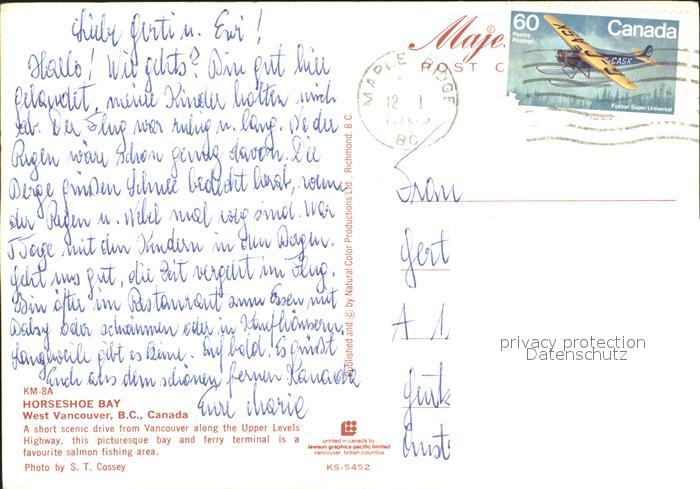 Liebe Gerti u. Evi!
Hallo! Wie gehts? Bin gut hier
gelandet, meine Kinder holten mich
ab. Der Flug war ruhig u. lang.
Regen wäre schon genug davon. Die
Berge grüßen Schnee bedeckt herab, wenn
der Regen u. Nebel mal weg sind. War
Tage mit den Kindern in den Bergen.
Geht uns gut, die Zeit vergeht im Flug.
Bin öfter im Restaurant zum Essen mit
oder schwimmen oder in Kaufhäusern
Langweile gibt es keine. Auf bald. Es grüßt
Euch aus dem schönen fernen Kanada
Eure Maria
KM-8A
HORSESHOE BAY
West Vancouver, B.C., Canada
A short scenic drive from Vancouver along the Upper Levels
Highway, this picturesque bay and ferry terminal is a
favourite salmon fishing area.
Photo by S. T. Cossey
Published and © by Natural Color Productions Ltd., Richmond, B.C.
printed in canada by
lawson graphics pacific limited
vancouver, british columbia
KS-5452
Maje
POST C
MAPLE RIDGE
12 I
80
60
Postes
Postage
Canada
CF-CASK
Fokker Super Universal
Frau
Gert
A 1
privacy protection
Datenschutz